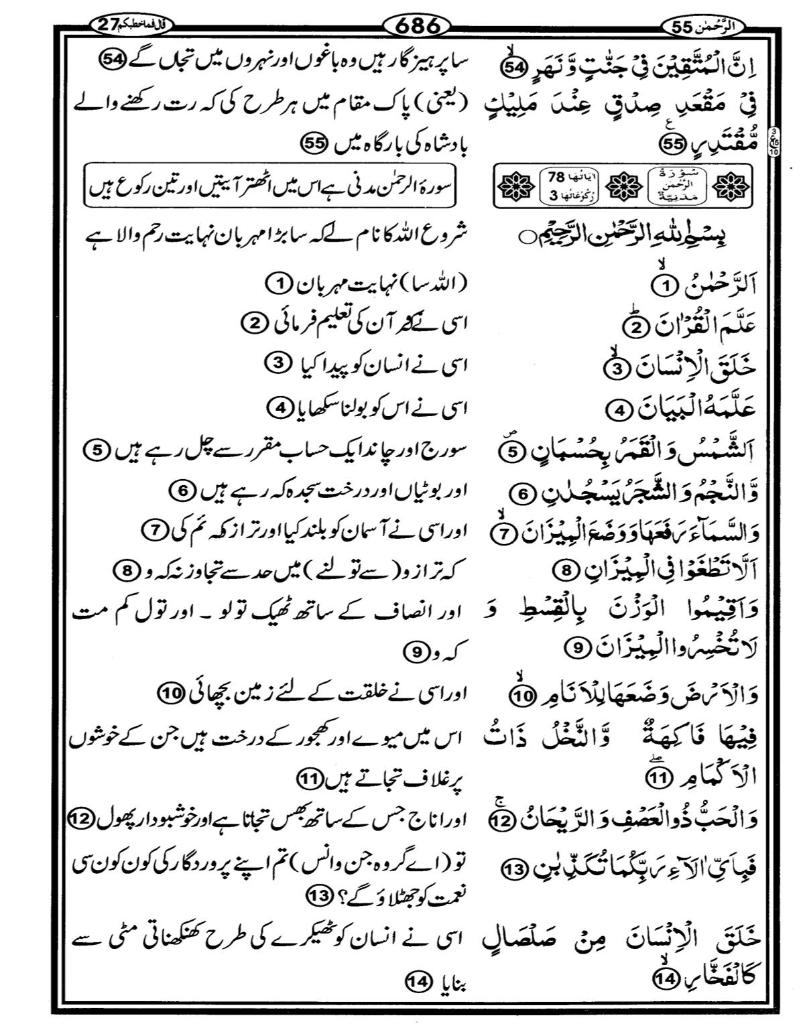 الرَّحْمٰن 55
686
قال فماخطبکم 27
اِنَّ الْمُتَّقِيْنَ فِيْ جَنّٰتٍ وَّنَهَرٍ ۙ 54
سا پرہیز گار ہیں وہ باغوں اور نہروں میں تجاں گے 54
فِيْ مَقْعَدِ صِدْقٍ عِنْدَ مَلِيْكٍ
(یعنی) پاک مقام میں ہر طرح کی کہ رت رکھنے والے
مُّقْتَدِرٍ ع 55
بادشاہ کی بارگاہ میں 55
سُوْرَةُ الرَّحْمٰنِ مَدَنِيَّةٌ
اٰيَاتُهَا 78
رُكُوْعَاتُهَا 3
سورۂ الرحمٰن مدنی ہے اس میں اٹھتر آیتیں اور تین رکوع ہیں
بِسْمِ اللهِ الرَّحْمٰنِ الرَّحِيْمِ ○
شروع اللہ کا نام لے کہ سا بڑا مہربان نہایت رحم والا ہے
اَلرَّحْمٰنُ ۙ 1
(اللہ سا) نہایت مہربان 1
عَلَّمَ الْقُرْاٰنَ ؕ 2
اسی نے کہ آن کی تعلیم فرمائی 2
خَلَقَ الْاِنْسَانَ ۙ 3
اسی نے انسان کو پیدا کیا 3
عَلَّمَهُ الْبَيَانَ 4
اسی نے اس کو بولنا سکھایا 4
اَلشَّمْسُ وَالْقَمَرُ بِحُسْبَانٍ ۪ 5
سورج اور چاند ایک حساب مقرر سے چل رہے ہیں 5
وَّالنَّجْمُ وَالشَّجَرُ يَسْجُدٰنِ 6
اور بوٹیاں اور درخت سجدہ کہ رہے ہیں 6
وَالسَّمَآءَ رَفَعَهَا وَوَضَعَ الْمِيْزَانَ ۙ 7
اور اسی نے آسمان کو بلند کیا اور ترازکہ ئم کی 7
اَلَّا تَطْغَوْا فِي الْمِيْزَانِ 8
کہ ترازو (سے تولنے) میں حد سے تجاوز نہ کہ و 8
وَاَقِيْمُوا الْوَزْنَ بِالْقِسْطِ وَ
اور انصاف کے ساتھ ٹھیک تولو ۔ اور تول کم مت
لَا تُخْسِرُوا الْمِيْزَانَ 9
کہ و 9
وَالْاَرْضَ وَضَعَهَا لِلْاَنَامِ ۙ 10
اور اسی نے خلقت کے لئے زمین بچھائی 10
فِيْهَا فَاكِهَةٌ وَّالنَّخْلُ ذَاتُ
اس میں میوے اور کھجور کے درخت ہیں جن کے خوشوں
الْاَكْمَامِ ۖ 11
پر غلاف تجاتے ہیں 11
وَالْحَبُّ ذُو الْعَصْفِ وَالرَّيْحَانُ ۚ 12
اور اناج جس کے ساتھ بھس تجاتا ہے اور خوشبودار پھول 12
فَبِاَيِّ اٰلَآءِ رَبِّكُمَا تُكَذِّبٰنِ 13
تو (اے گروہ جن وانس) تم اپنے پروردگار کی کون کون سی
نعمت کو جھٹلاؤ گے؟ 13
خَلَقَ الْاِنْسَانَ مِنْ صَلْصَالٍ
اسی نے انسان کو ٹھیکرے کی طرح کھنکھناتی مٹی سے
كَالْفَخَّارِ ۙ 14
بنایا 14